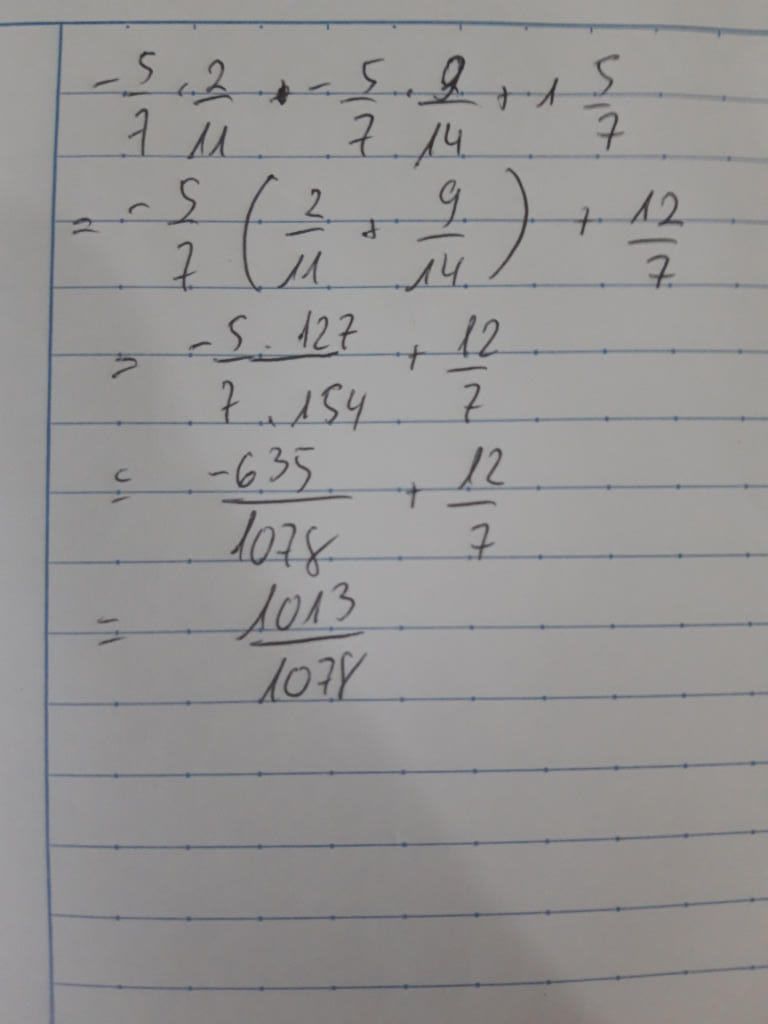 -5/7 . 2/11 + -5/7 . 9/14 + 1 5/7
= -5/7 (2/11 + 9/14) + 12/7
= -5 . 127 / 7 . 154 + 12/7
= -635/1078 + 12/7
= 1013/1078